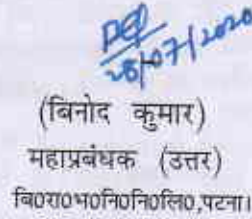 28/07/2020
(बिनोद कुमार)
महाप्रबंधक (उत्तर)
बि०रा०भ०नि०नि०लि०,पटना।